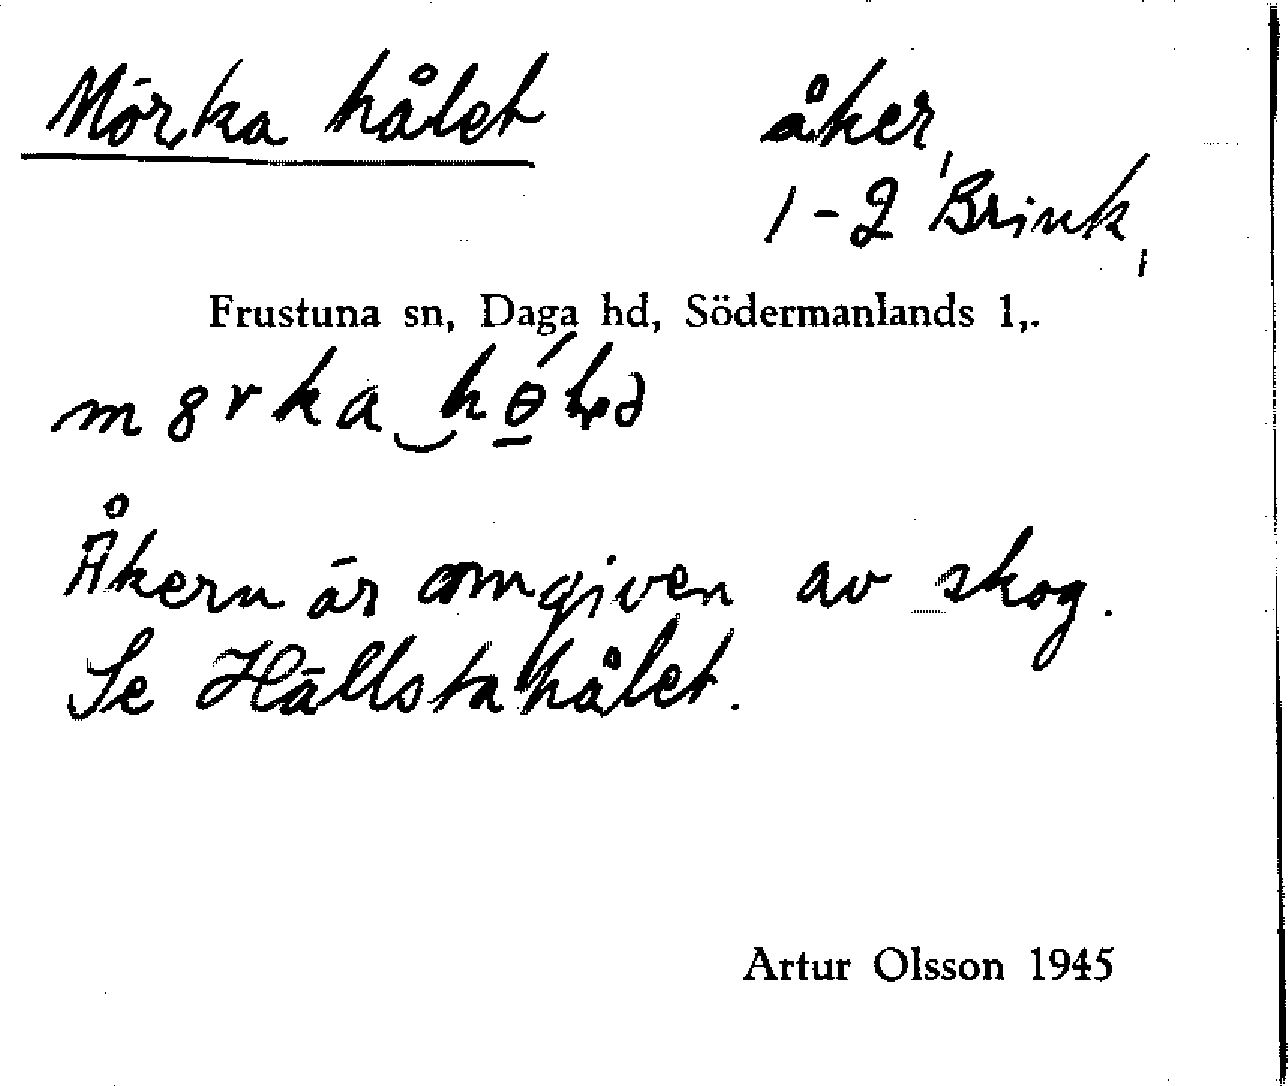 Mörka hålet åker,
1-2 Brink,
Frustuna sn, Daga hd, Södermanlands l,.
Åkern är omgiven av skog.
Se Hällstahålet.
Artur Olsson 1945